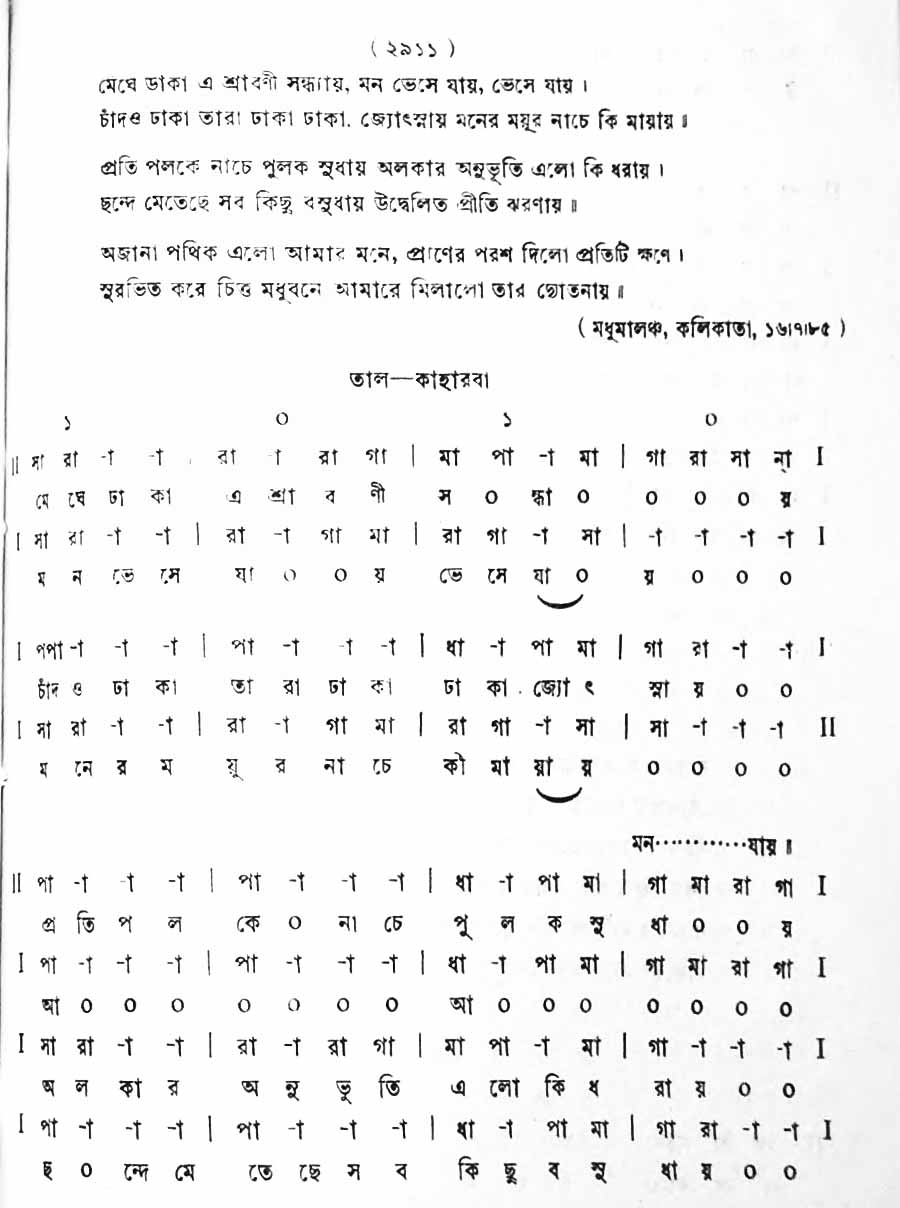 ( ২৯১১ )
মেঘে ডাকা এ শ্রাবণী সন্ধ্যায়, মন ভেসে যায়, ভেসে যায় ।
চাঁদও ঢাকা তারা ঢাকা ঢাকা. জ্যোৎস্নায় মনের ময়ূর নাচে কি মায়ায় ॥
প্রতি পলকে নাচে পুলক সুধায় অলকার অনুভূতি এলো কি ধরায় ।
ছন্দে মেতেছে সব কিছু বসুধায় উদ্বেলিত প্রীতি ঝরণায় ॥
অজানা পথিক এলো আমার মনে, প্রাণের পরশ দিলো প্রতিটি ক্ষণে ।
সুরভিত করে চিত্ত মধুবনে আমারে মিলালো তার দ্যোতনায় ॥
( মধুমালঞ্চ, কলিকাতা, ১৬।৭।৮৫ )
তাল—কাহারবা
১ ০ ১ ০
|| সা রা -া -া . রা -া রা গা | মা পা -া মা | গা রা সা ন্া I
মে ঘে ঢা কা এ শ্রা ব ণী স ০ ন্ধা ০ ০ ০ ০ য়
| সা রা -া -া | রা -া গা মা | রা গা -া সা | -া -া -া -া I
ম ন ভে সে যা ০ ০ য় ভে সে যা ০ য় ০ ০ ০
I পপা -া -া -া | পা -া -া -া | ধা -া পা মা | গা রা -া -া I
চাঁদ ও ঢা কা তা রা ঢা কা ঢা কা . জ্যো ৎ স্না য় ০ ০
I সা রা -া -া | রা -া গা মা | রা গা -া সা | সা -া -া -া II
ম নে র ম য়ূ র না চে কী মা য়া য় ০ ০ ০ ০
মন············যায় ॥
|| পা -া -া -া | পা -া -া -া | ধা -া পা মা | গা মা রা গা I
প্র তি প ল কে ০ না চে পু ল ক সু ধা ০ ০ য়
I পা -া -া -া | পা -া -া -া | ধা -া পা মা | গা মা রা গা I
আ ০ ০ ০ ০ ০ ০ ০ আ ০ ০ ০ ০ ০ ০ ০
I সা রা -া -া | রা -া রা গা | মা পা -া মা | গা -া -া -া I
অ ল কা র অ নু ভু তি এ লো কি ধ রা য় ০ ০
I পা -া -া -া | পা -া -া -া | ধা -া পা মা | গা রা -া -া I
ছ ০ ন্দে মে তে ছে স ব কি ছু ব সু ধা য় ০ ০